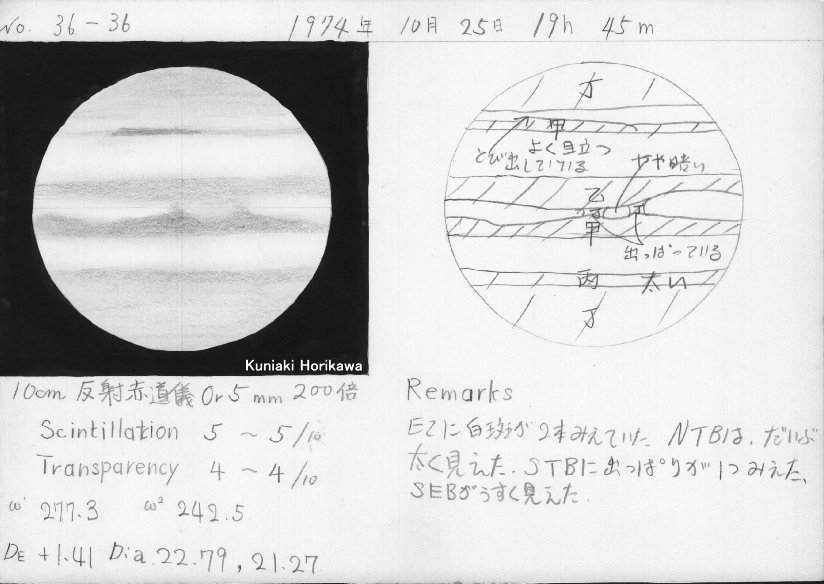 No. 36-36
1974年 10月 25日 19h 45m
方
甲
よく目立つ
とび出している
やや暗い
乙
甲
出っぱっている
丙 太い
Kuniaki Horikawa
10cm 反射赤道儀 Or 5mm 200倍
Scintillation 5 ~ 5/10
Transparency 4 ~ 4/10
ω¹ 277.3 ω² 242.5
DE +1.41 Dia. 22.79, 21.27
Remarks
EZに白斑が2本みえていた. NTBは、だいぶ
太く見えた. STBに出っぱりが1つみえた、
SEBがうすく見えた.